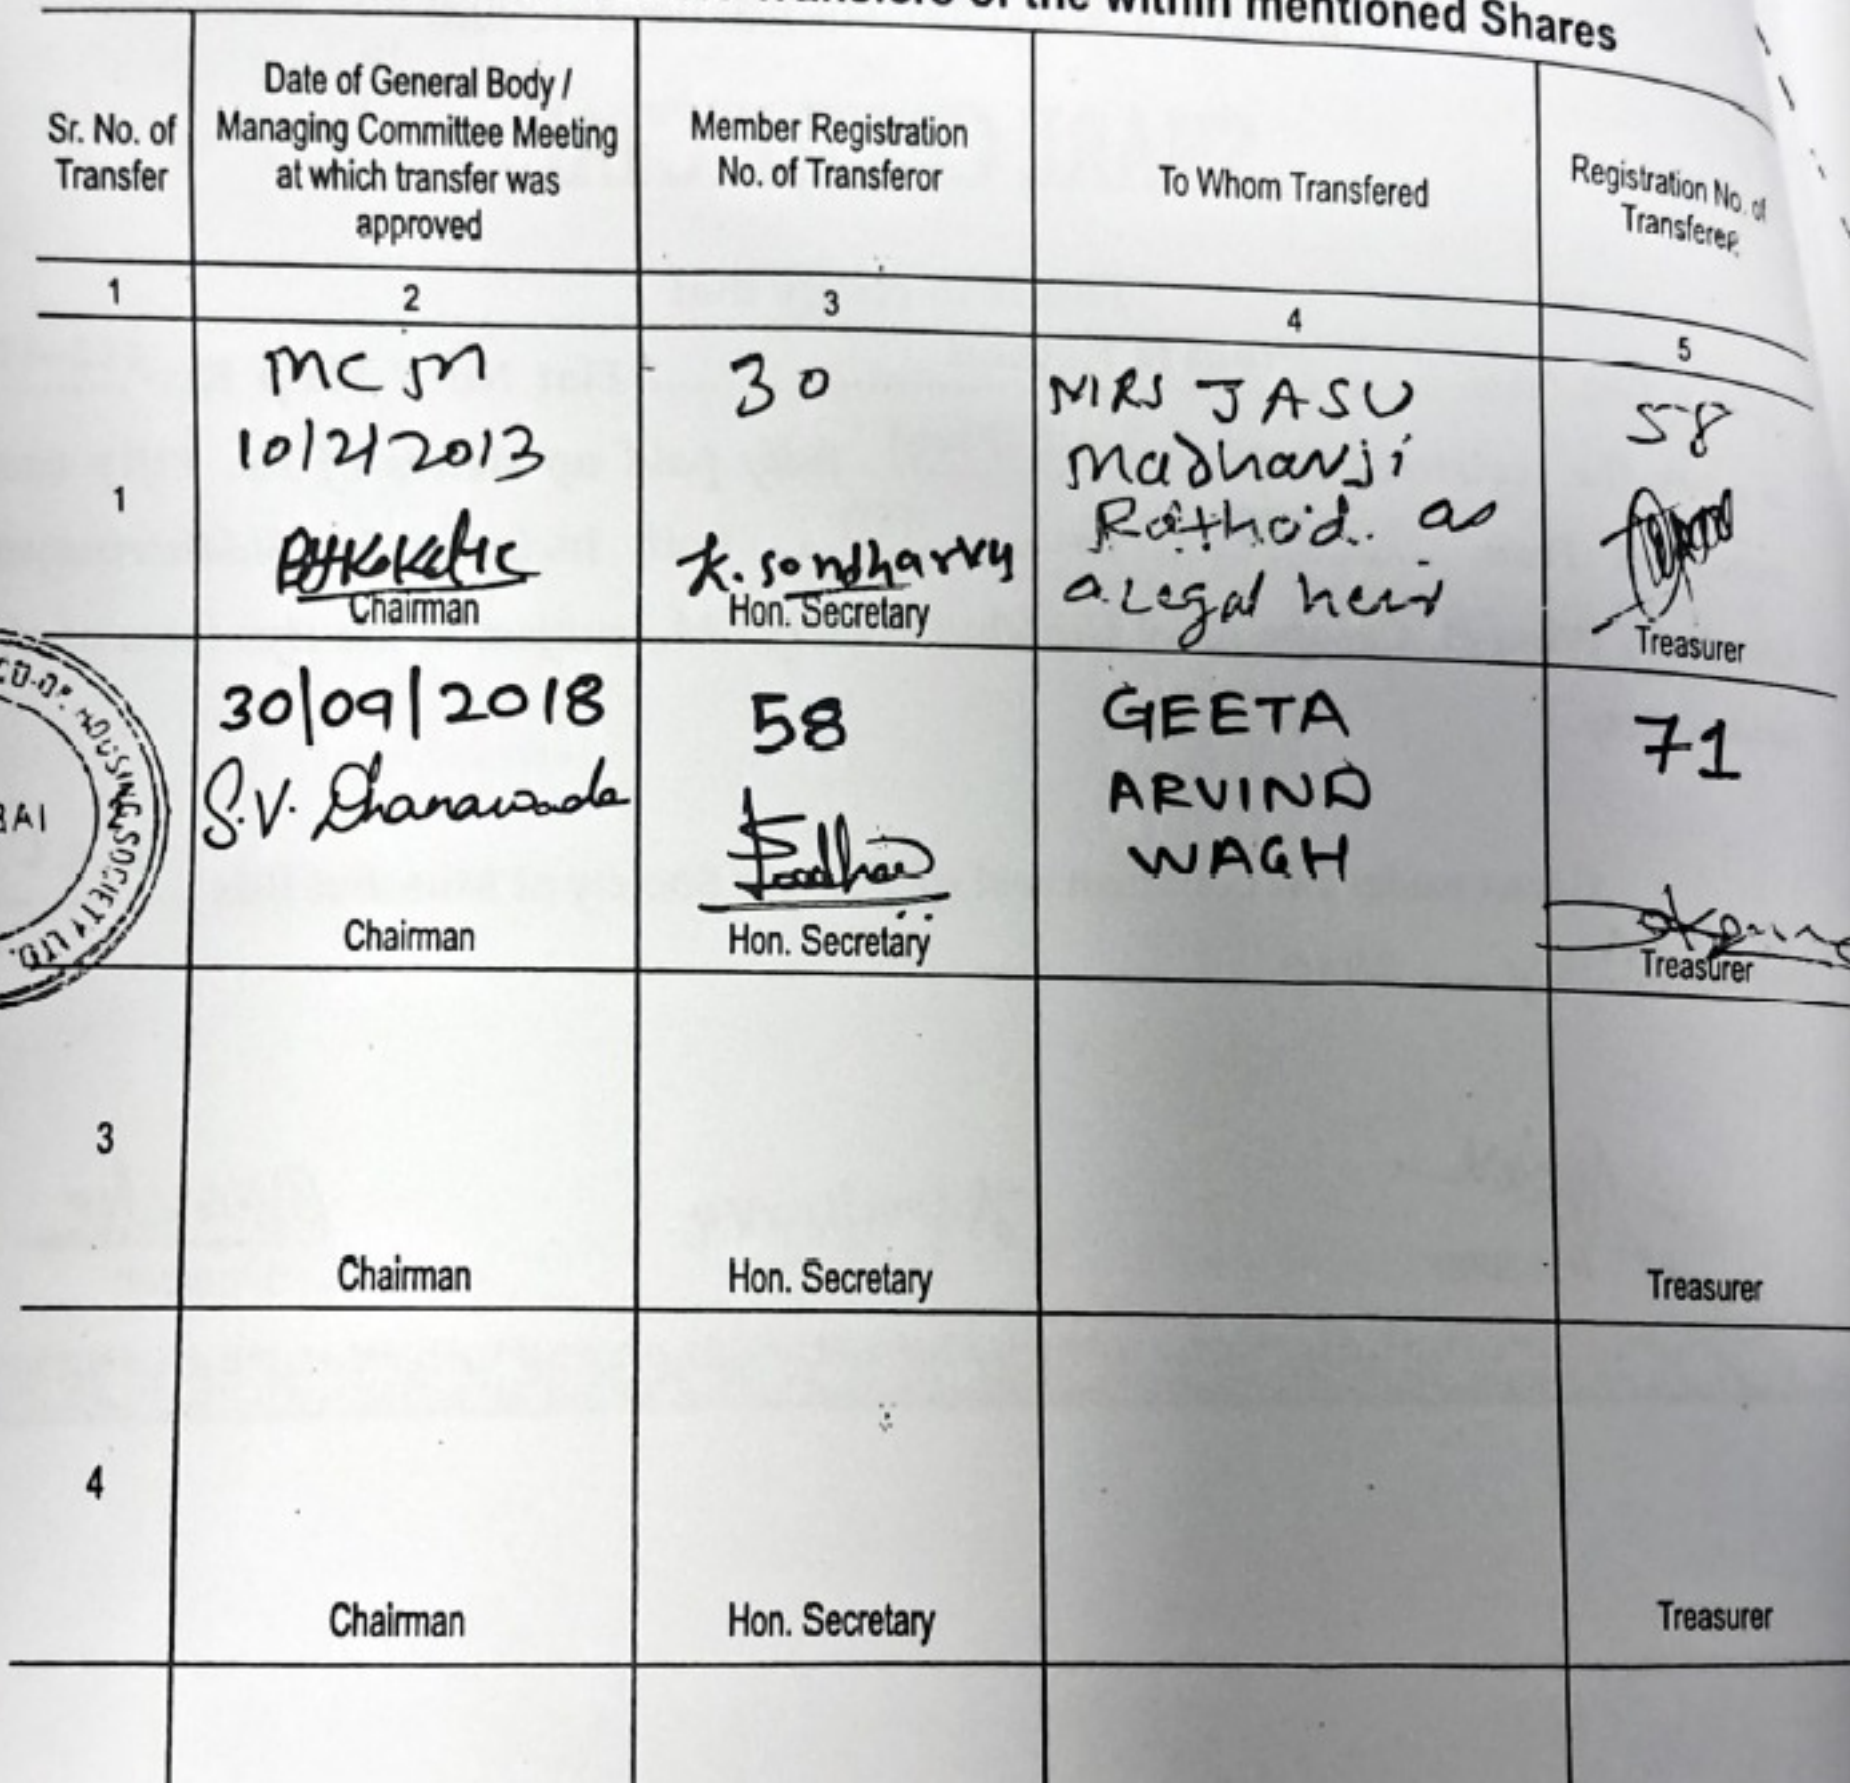 Transfers of the within mentioned Shares
Sr. No. of
Transfer
Date of General Body /
Managing Committee Meeting
at which transfer was
approved
Member Registration
No. of Transferor
To Whom Transfered
Registration No. of
Transferee.
1
2
3
4
5
1
MCM
10/2/2013
Chairman
30
K. Sondharvy
Hon. Secretary
MRS JASU
Madhavji
Rathod. as
a Legal heir
58
Treasurer
CO-OP. HOUSING SOCIETY LTD.
BAI
30/09/2018
S.V. Dhanawade
Chairman
58
Hon. Secretary
GEETA
ARVIND
WAGH
71
Treasurer
3
Chairman
Hon. Secretary
Treasurer
4
Chairman
Hon. Secretary
Treasurer